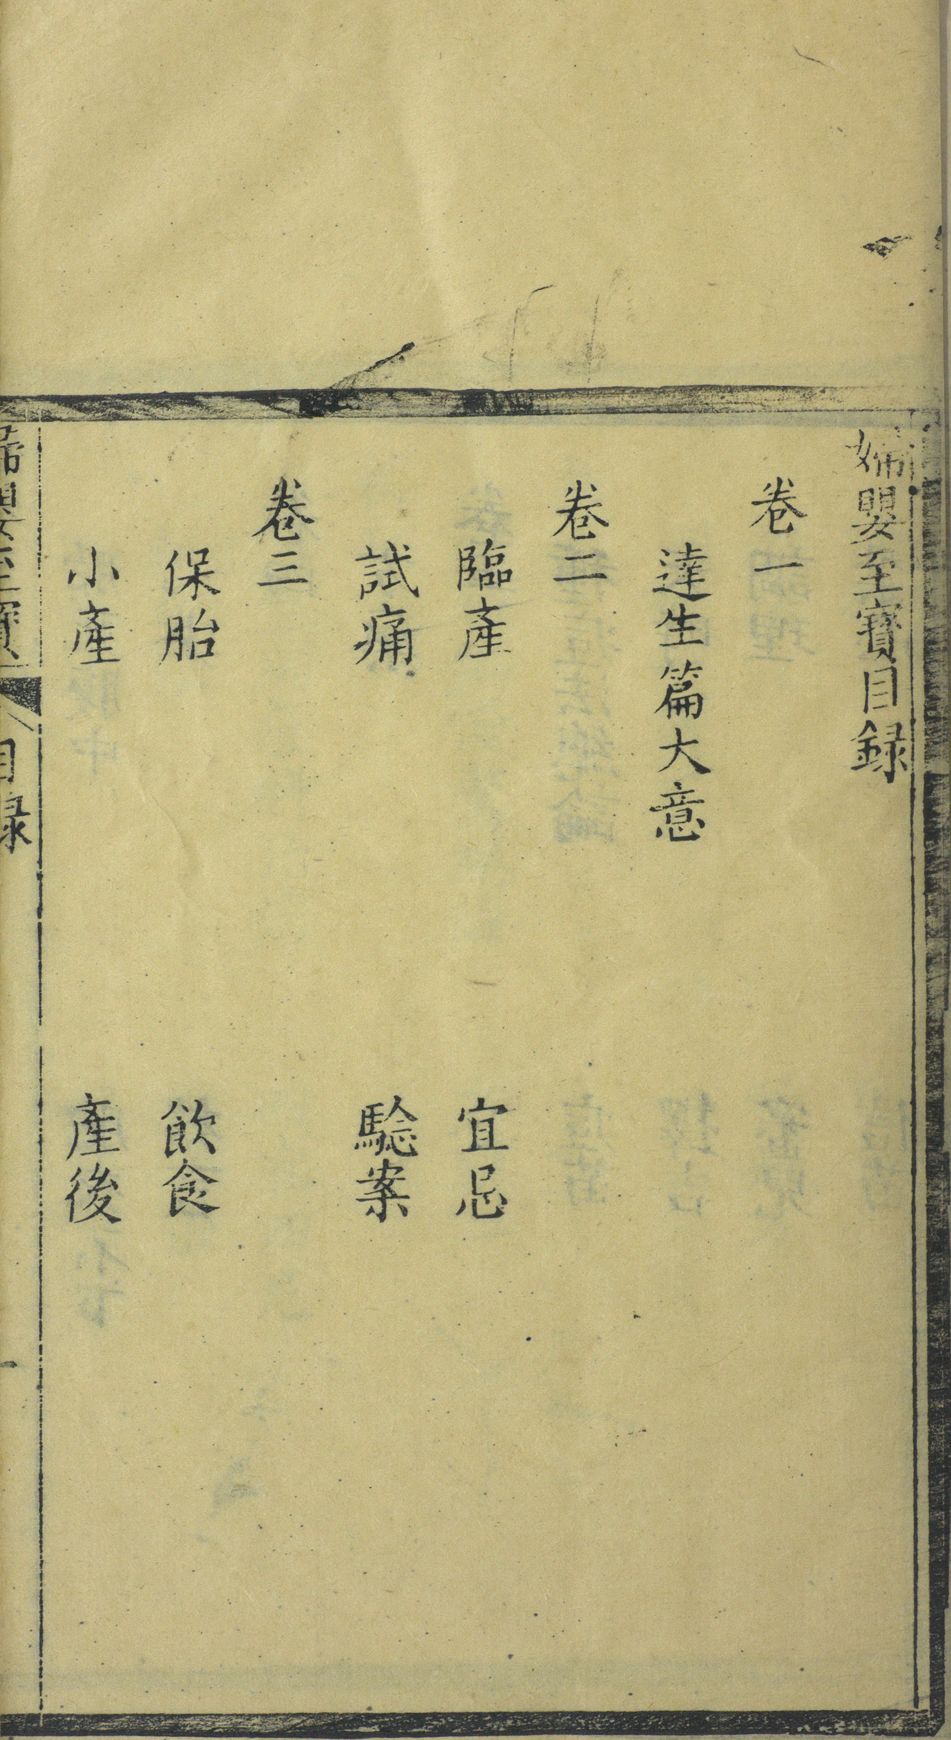 婦嬰至寶目録
卷一
達生篇大意
卷二
臨產　宜忌
試痛　騐案
卷三
保胎　飲食
小產　產後
婦嬰至寶　目録　一